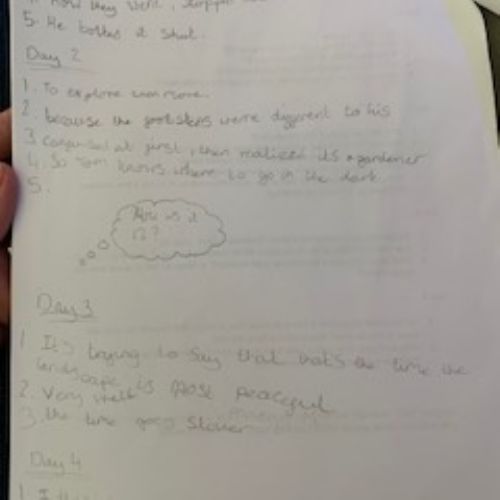 4. How they went,
5. He bolted it shut.
Day 2
1. To explore
2. because the footsteps were different to his
3. at first, then realized its a gardener
4. So Tom knows where to go in the dark
5.
is it
13?
Day 3
1. It's trying to say that that's the time the
landscape is most peaceful
2. Very
3. the time goes slower
Day 4
1. I